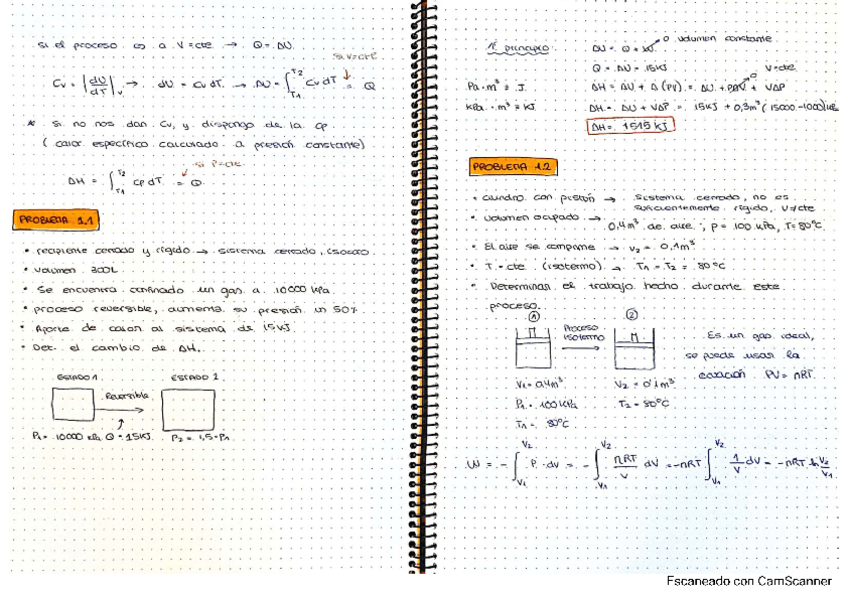 si el proceso es a V=cte → Q=ΔU.
si V=cte
Cv = |dU/dT|v → dU = Cv dT → ΔU = ∫T1 T2 Cv dT = Q
* si no nos dan Cv, y dispongo de la Cp
(calor específico calculado a presión constante)
si P=cte
ΔH = ∫T1 T2 Cp dT = Q
PROBLEMA 1.1
• recipiente cerrado y rígido → sistema cerrado, isocoro
• volumen 300L
• Se encuentra confinado un gas a 10000 kPa
• proceso reversible, aumenta su presión un 50%
• Aporte de calor al sistema de 15kJ
• Det. el cambio de ΔH.
ESTADO 1 ESTADO 2
Reversible
P1 = 10000 kPa Q = 15kJ P2 = 1,5·P1
1er principio ΔU = Q + W 0 volumen constante
Q = ΔU = 15kJ V=cte
Pa·m³ = J ΔH = ΔU + Δ(PV) = ΔU + PΔV 0 + VΔP
kPa·m³ = kJ ΔH = ΔU + VΔP = 15kJ + 0,3m³ (15000-1000)
ΔH = 1515 kJ
PROBLEMA 1.2
• cilindro con pistón → Sistema cerrado, no es
suficientemente rígido, V≠cte
• volumen ocupado →
0,4m³ de aire, P = 100 kPa, T=80ºC
• El aire se comprime → V2 = 0,1m³
• T=cte (isotermo) → T1 = T2 = 80ºC
• Determinar el trabajo hecho durante este
proceso.
① ②
Proceso
isotermo
Es un gas ideal,
se puede usar la
ecuación PV = nRT.
V1 = 0,4m³ V2 = 0,1m³
P1 = 100kPa T2 = 80ºC
T1 = 80ºC
W = -∫V1 V2 P·dV = -∫V1 V2 nRT/V dV = -nRT ∫V1 V2 1/V dV = -nRT ln V2/V1
Escaneado con CamScanner